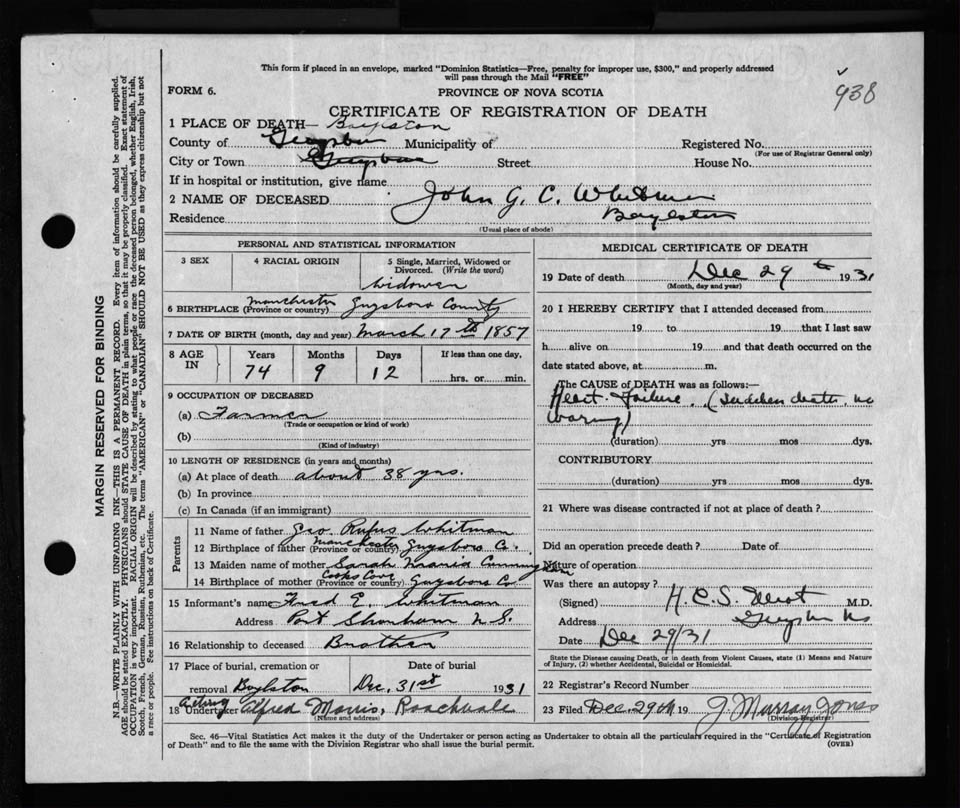 This form if placed in an envelope, marked "Dominion Statistics—Free, penalty for improper use, $300," and properly addressed
will pass through the Mail "FREE"
938
FORM 6.
PROVINCE OF NOVA SCOTIA
CERTIFICATE OF REGISTRATION OF DEATH
1 PLACE OF DEATH— Boylston
County of Guysboro Municipality of Registered No.
(For use of Registrar General only)
City or Town Guysboro Street House No.
If in hospital or institution, give name
2 NAME OF DECEASED John G. C. Whitman
Residence Boylston
(Usual place of abode)
PERSONAL AND STATISTICAL INFORMATION
3 SEX 4 RACIAL ORIGIN 5 Single, Married, Widowed or
Divorced. (Write the word)
Widower
6 BIRTHPLACE (Province or country) Manchester Guysboro County
7 DATE OF BIRTH (month, day and year) March 17th 1857
8 AGE IN Years Months Days If less than one day,
74 9 12 hrs. or min.
9 OCCUPATION OF DECEASED
(a) Farmer
(Trade or occupation or kind of work)
(b)
(Kind of industry)
10 LENGTH OF RESIDENCE (in years and months)
(a) At place of death about 38 yrs.
(b) In province
(c) In Canada (if an immigrant)
Parents
11 Name of father Geo Rufus Whitman
12 Birthplace of father (Province or country) Manchester Guysboro Co.
13 Maiden name of mother Sarah Maria Cunningham
14 Birthplace of mother (Province or country) Cooks Cove Guysboro Co
15 Informant's name Fred E. Whitman
Address Port Shoreham N.S.
16 Relationship to deceased Brother
17 Place of burial, cremation or Date of burial
removal Boylston Dec. 31st 1931
18 Acting Undertaker Alfred Morris, Roachvale
(Name and address)
MEDICAL CERTIFICATE OF DEATH
19 Date of death Dec 29th 1931
(Month, day and year)
20 I HEREBY CERTIFY that I attended deceased from
19 to 19 that I last saw
h alive on 19 and that death occurred on the
date stated above, at m.
The CAUSE OF DEATH was as follows:—
Heart Failure. (Sudden death, no
waring)
(duration) yrs mos dys.
CONTRIBUTORY
(duration) yrs. mos. dys.
21 Where was disease contracted if not at place of death?
Did an operation precede death? Date of
Nature of operation
Was there an autopsy?
(Signed) H.C.S. M.D.
Address Guysboro NS
Date Dec 29/31
State the Disease causing Death, or in death from Violent Causes, state (1) Means and Nature
of Injury, (2) whether Accidental, Suicidal or Homicidal.
22 Registrar's Record Number
23 Filed Dec. 29th 19 J Murray Jones
(Division Registrar)
Sec. 46—Vital Statistics Act makes it the duty of the Undertaker or person acting as Undertaker to obtain all the particulars required in the "Certificate of Registration
of Death" and to file the same with the Division Registrar who shall issue the burial permit.
(OVER)
MARGIN RESERVED FOR BINDING
N.B.—WRITE PLAINLY WITH UNFADING INK—THIS IS A PERMANENT RECORD. Every item of information should be carefully supplied.
AGE should be stated EXACTLY. PHYSICIANS should STATE CAUSE OF DEATH in plain terms, so that it may be properly classified. Exact statement of
OCCUPATION is very important. RACIAL ORIGIN will be described by stating to what people or race the deceased person belonged, whether English, Irish,
Scotch, French, German, Russian, Ruthenian, etc. The terms "AMERICAN" or "CANADIAN" SHOULD NOT BE USED as they express citizenship but not
a race or people. See instructions on back of Certificate.